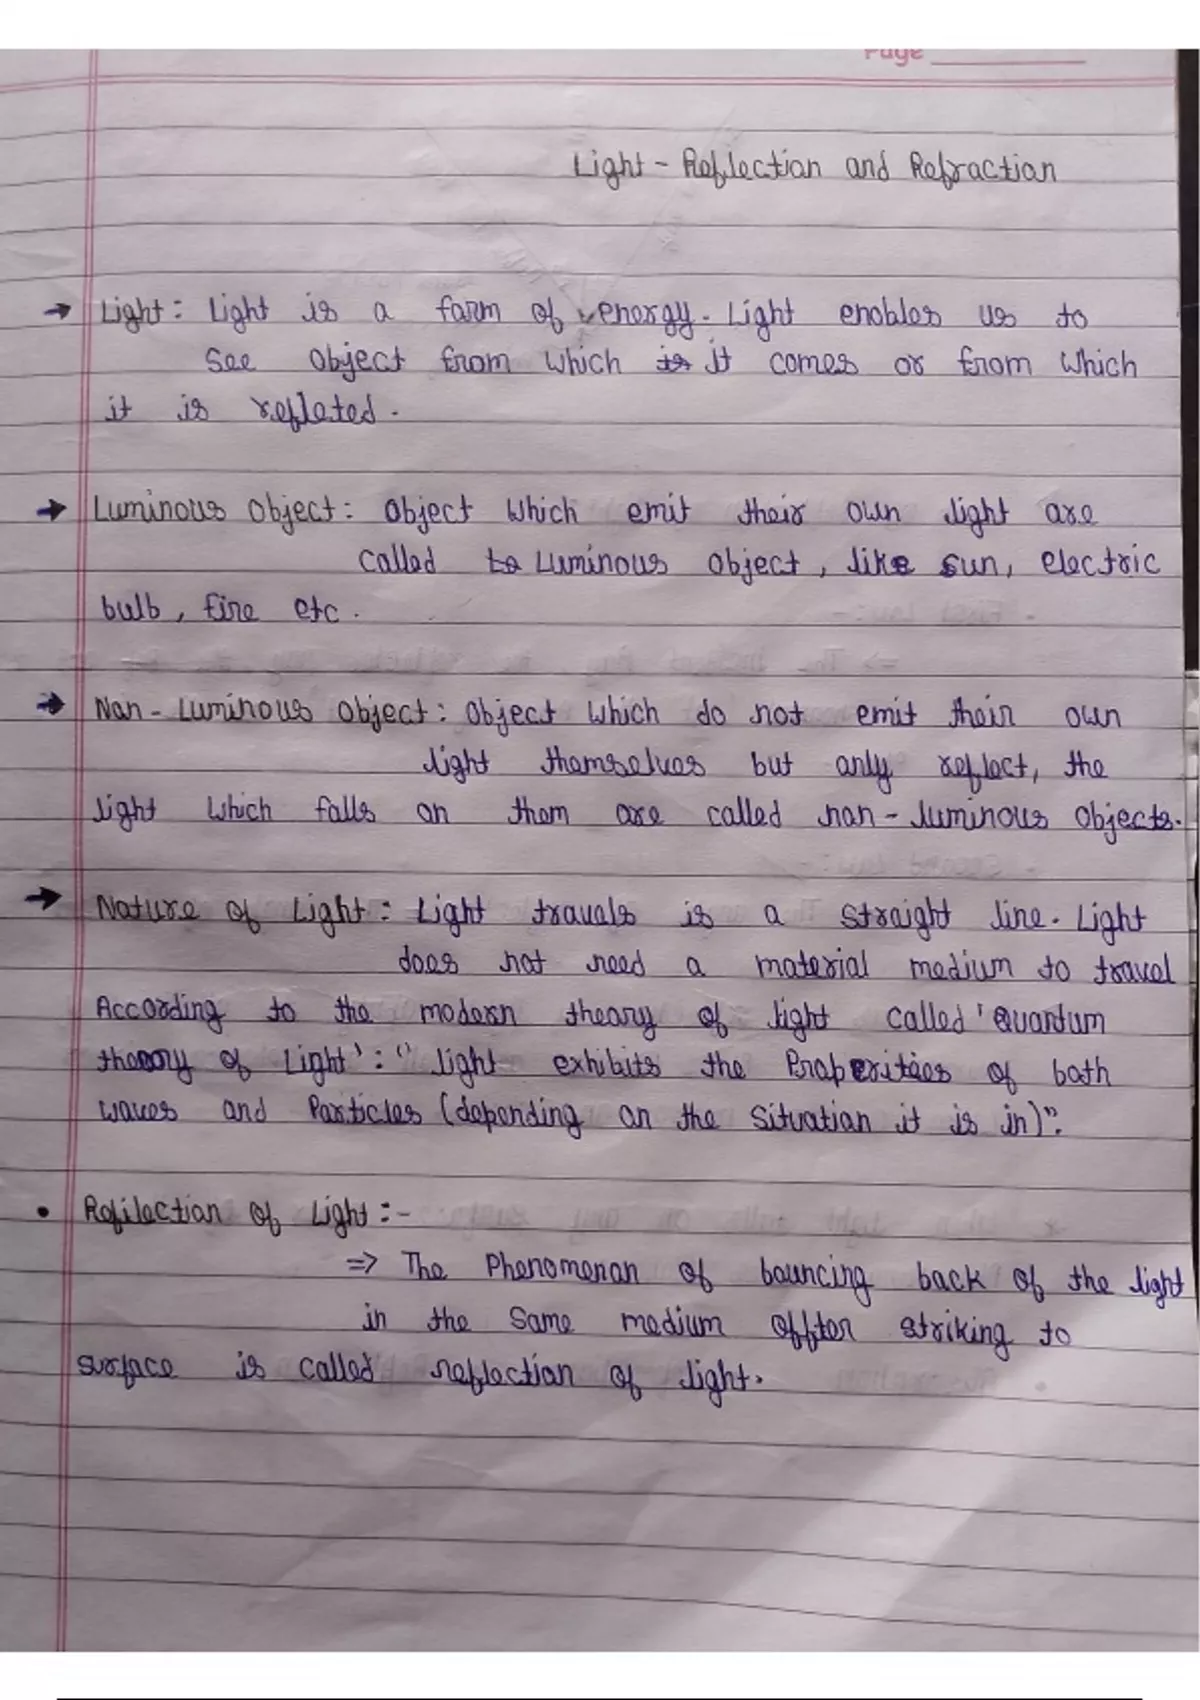 Page
Light - Reflection and Refraction
→ Light : Light is a form of energy. Light enables us to
See object from which is it comes or from which
it is refleted.
→ Luminous object : object which emit their own light are
called to Luminous object, like sun, electric
bulb, fire etc.
→ Non - Luminous object : object which do not emit their own
light themselves but only reflect, the
light which falls on them are called non - luminous objects.
→ Nature of Light : Light travels is a straight line. Light
does not need a material medium to travel
According to the modern theory of light called 'Quantum
theory of Light' : " light exhibits the Properities of both
waves and Particles (depending on the situation it is in)".
• Refilection of Light :-
=> The Phenomenon of bouncing back of the light
in the same medium offter striking to
surface is called reflection of light.